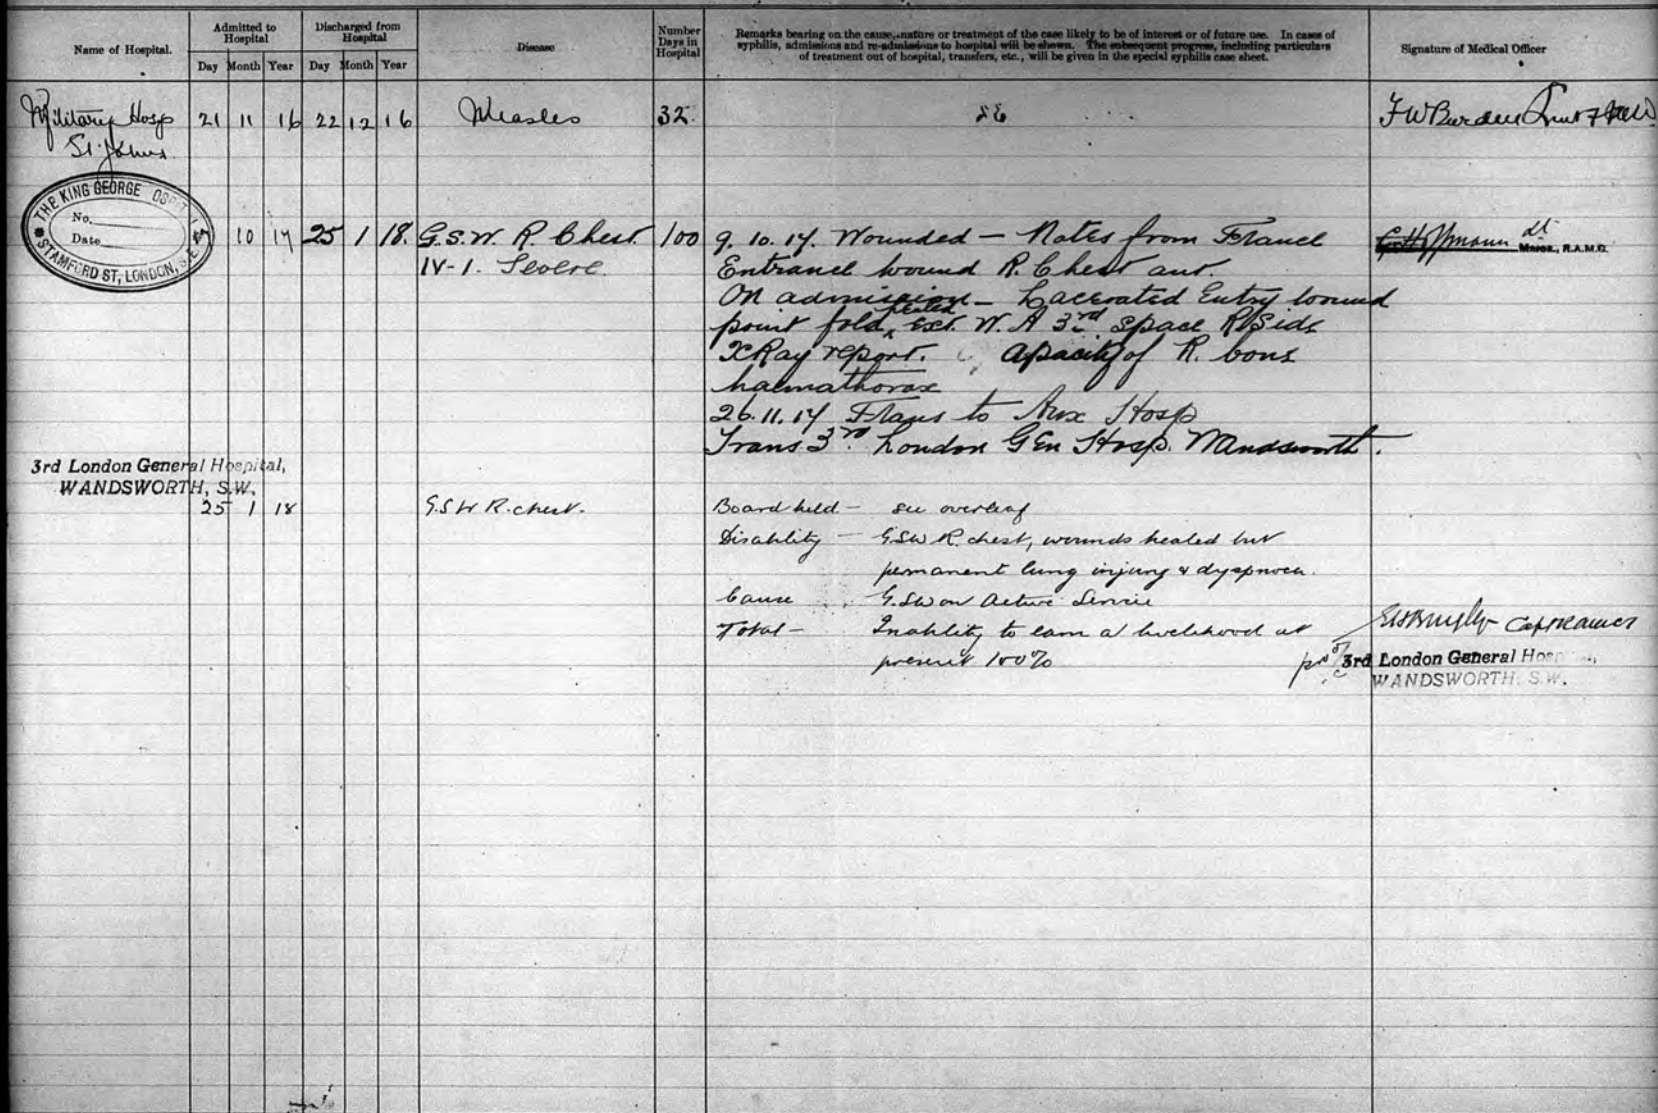 Name of Hospital.
Admitted to Hospital
Discharged from Hospital
Disease
Number Days in Hospital
Remarks bearing on the cause, nature or treatment of the case likely to be of interest or of future use. In cases of
syphilis, admissions and re-admissions to hospital will be shewn. The subsequent progress, including particulars
of treatment out of hospital, transfers, etc., will be given in the special syphilis case sheet.
Signature of Medical Officer
Day Month Year Day Month Year
Military Hosp 21 11 16 22 12 16 Measles 32 FW Burden
St. Johns
THE KING GEORGE OSPIT
No.
Date
STAMFORD ST, LONDON, S.E.
10 17 25 1 18. G.S.W. R. Chest. 100 9.10.17. Wounded — Notes from France
Major, R.A.M.C.
IV-1. Severe. Entrance wound R. Chest ant.
On admission — Lacerated Entry wound
point fold, healed Ext. W. A 3rd space R Side
XRay report. Opacity of R.
haemathorax
26.11.17 Trans to Aux Hosp
Trans. 3rd London Gen Hosp. Wandsworth.
3rd London General Hospital,
WANDSWORTH, S.W.
25 1 18 G.S.W R. chest. Board held — see overleaf
Disability — G.S.W R. chest, wounds healed but
permanent lung injury & dyspnoea.
Cause G.S.W on Active Service
Total — Inability to earn a livelihood at
present 100%
Capt RAMC
3rd London General Hosp
WANDSWORTH. S.W.